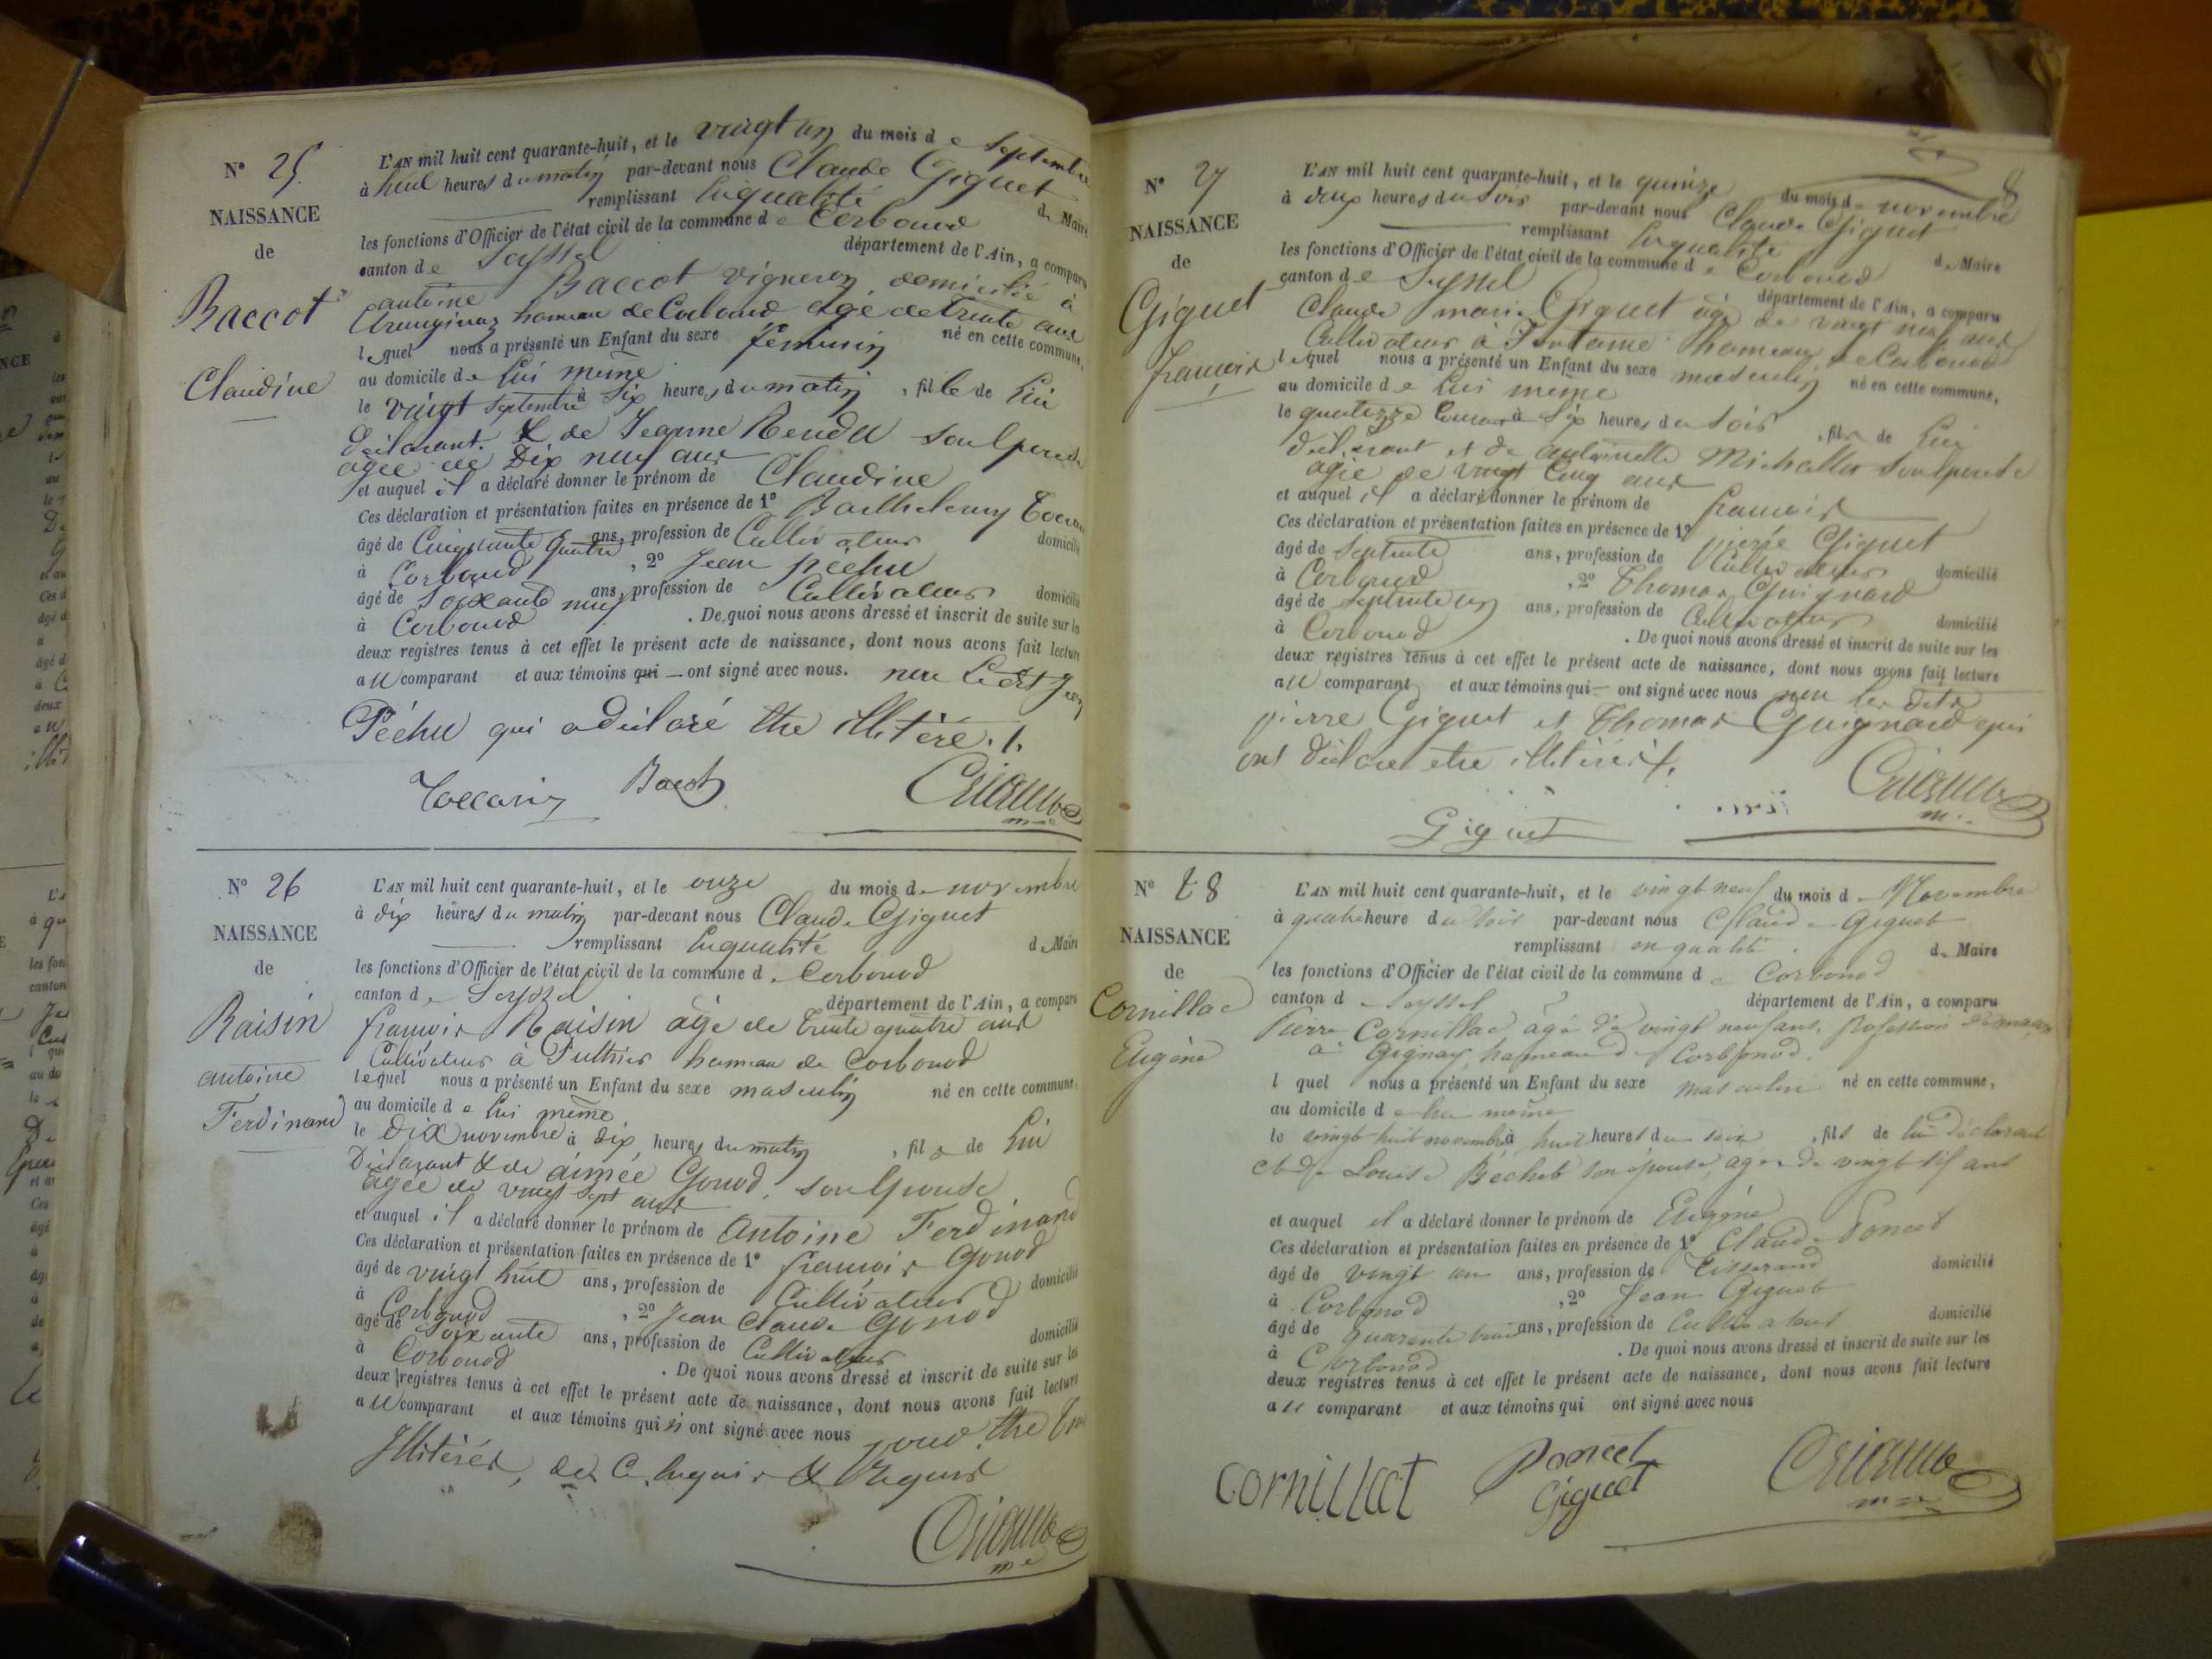 N° 25.
NAISSANCE
de
Baccot
Claudine
L'AN mil huit cent quarante-huit, et le vingt un du mois de septembre
à heures du matin par-devant nous Claude Giguet
remplissant en qualité de Maire
les fonctions d'Officier de l'état civil de la commune de Corbonod
canton de Seyssel département de l'Ain, a comparu
antoine Baccot vigneron, domicilié à
hameau de Corbonod agé de trente ans
lequel nous a présenté un Enfant du sexe féminin né en cette commune,
au domicile de lui meme
le vingt septembre à six heures du matin, fille de lui
déclarant. & de Jeanne Rendu son épouse
agée de Dix neuf ans
et auquel il a déclaré donner le prénom de Claudine
Ces déclaration et présentation faites en présence de 1° Barthelemy
âgé de Cinquante quatre ans, profession de Cultivateur domicilié
à Corbonod, 2° Jean péchu
âgé de Soixante neuf ans, profession de Cultivateur domicilié
à Corbonod. De quoi nous avons dressé et inscrit de suite sur les
deux registres tenus à cet effet le présent acte de naissance, dont nous avons fait lecture
au comparant et aux témoins qui ont signé avec nous. non le dit Jean
Péchu qui a déclaré être illitéré.
Bacot
N° 26
NAISSANCE
de
Raisin
antoine
Ferdinand
L'AN mil huit cent quarante-huit, et le onze du mois de novembre
à dix heures du matin par-devant nous Claude Giguet
remplissant en qualité de Maire
les fonctions d'Officier de l'état civil de la commune de Corbonod
canton de Seyssel département de l'Ain, a comparu
françois Raisin âgé de trente quatre ans
Cultivateur à hameau de Corbonod
lequel nous a présenté un Enfant du sexe masculin né en cette commune,
au domicile de lui même
le dix novembre à dix heures du matin, fils de lui
Déclarant & de aimée Gonod, son épouse
agée de vingt sept ans
et auquel il a déclaré donner le prénom de antoine Ferdinand
Ces déclaration et présentation faites en présence de 1° françois Gonod
âgé de vingt huit ans, profession de Cultivateur domicilié
à Corbonod, 2° Jean Claude Gonod
âgé de Soixante ans, profession de Cultivateur domicilié
à Corbonod. De quoi nous avons dressé et inscrit de suite sur les
deux registres tenus à cet effet le présent acte de naissance, dont nous avons fait lecture
au comparant et aux témoins qui n'ont signé avec nous pour être
Illitérés, de ce enquis & requis
N° 27
NAISSANCE
de
Giguet
françois
8
L'AN mil huit cent quarante-huit, et le quinze du mois de novembre
à deux heures du soir par-devant nous Claude Giguet
remplissant en qualité de Maire
les fonctions d'Officier de l'état civil de la commune de Corbonod
canton de Seyssel département de l'Ain, a comparu
Claude marie Giguet agé de vingt neuf ans
Cultivateur à hameau de Corbonod
lequel nous a présenté un Enfant du sexe masculin né en cette commune,
au domicile de lui même
le quatorze courant à six heures du soir, fils de lui
déclarant et de antoinette son épouse
agée de vingt cinq ans
et auquel il a déclaré donner le prénom de françois
Ces déclaration et présentation faites en présence de 1° pierre Giguet
âgé de septente ans, profession de Cultivateur domicilié
à Corbonod, 2° Thomas Guignard
âgé de septente un ans, profession de Cultivateur domicilié
à Corbonod. De quoi nous avons dressé et inscrit de suite sur les
deux registres tenus à cet effet le présent acte de naissance, dont nous avons fait lecture
au comparant et aux témoins qui ont signé avec nous non les dits
pierre Giguet et Thomas Guignard qui
ont déclaré etre illitérés.
Giguet
N° 28
NAISSANCE
de
Cornillac
Eugène
L'AN mil huit cent quarante-huit, et le vingt neuf du mois de Novembre
à quatre heure du soir par-devant nous Claude Giguet
remplissant en qualité de Maire
les fonctions d'Officier de l'état civil de la commune de Corbonod
canton de Seyssel département de l'Ain, a comparu
Pierre Cornillac, agé de vingt neuf ans, profession de maçon
à Gignay hameau de Corbonod.
l quel nous a présenté un Enfant du sexe masculin né en cette commune,
au domicile de lui même
le vingt huit novembre à huit heures du soir, fils de lui déclarant
et de Louise Béchet son épouse, agée de vingt six ans
et auquel il a déclaré donner le prénom de Eugène
Ces déclaration et présentation faites en présence de 1° Claude Poncet
âgé de vingt un ans, profession de Tisserand domicilié
à Corbonod, 2° Jean Giguet
âgé de quarante trois ans, profession de Cultivateur domicilié
à Corbonod. De quoi nous avons dressé et inscrit de suite sur les
deux registres tenus à cet effet le présent acte de naissance, dont nous avons fait lecture
au comparant et aux témoins qui ont signé avec nous
cornillat Poncet
Giguet